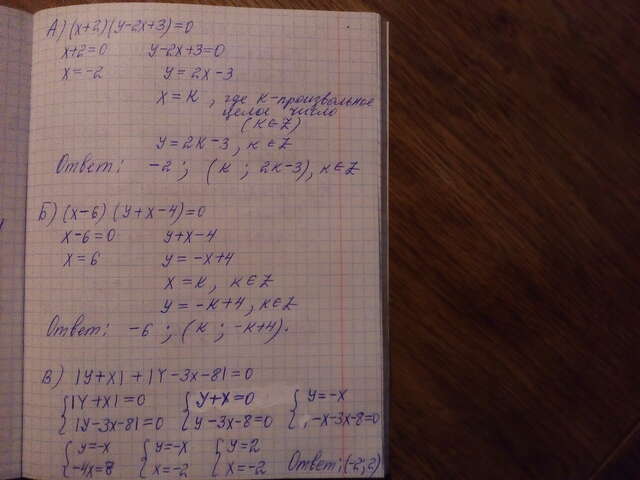 А) (x+2)(y-2x+3)=0
x+2=0 y-2x+3=0
x=-2 y=2x-3
x=к, где к-произвольное
целое число
(к∈Z)
y=2к-3, к∈Z
Ответ: -2; (к; 2к-3), к∈Z
Б) (x-6)(y+x-4)=0
x-6=0 y+x-4
x=6 y=-x+4
x=к, к∈Z
y=-к+4, к∈Z
Ответ: -6; (к; -к+4).
В) |y+x|+|y-3x-8|=0
{|y+x|=0 {y+x=0 {y=-x
{|y-3x-8|=0 {y-3x-8=0 {-x-3x-8=0
{y=-x {y=-x {y=2
{-4x=8 {x=-2 {x=-2 Ответ: (-2; 2)